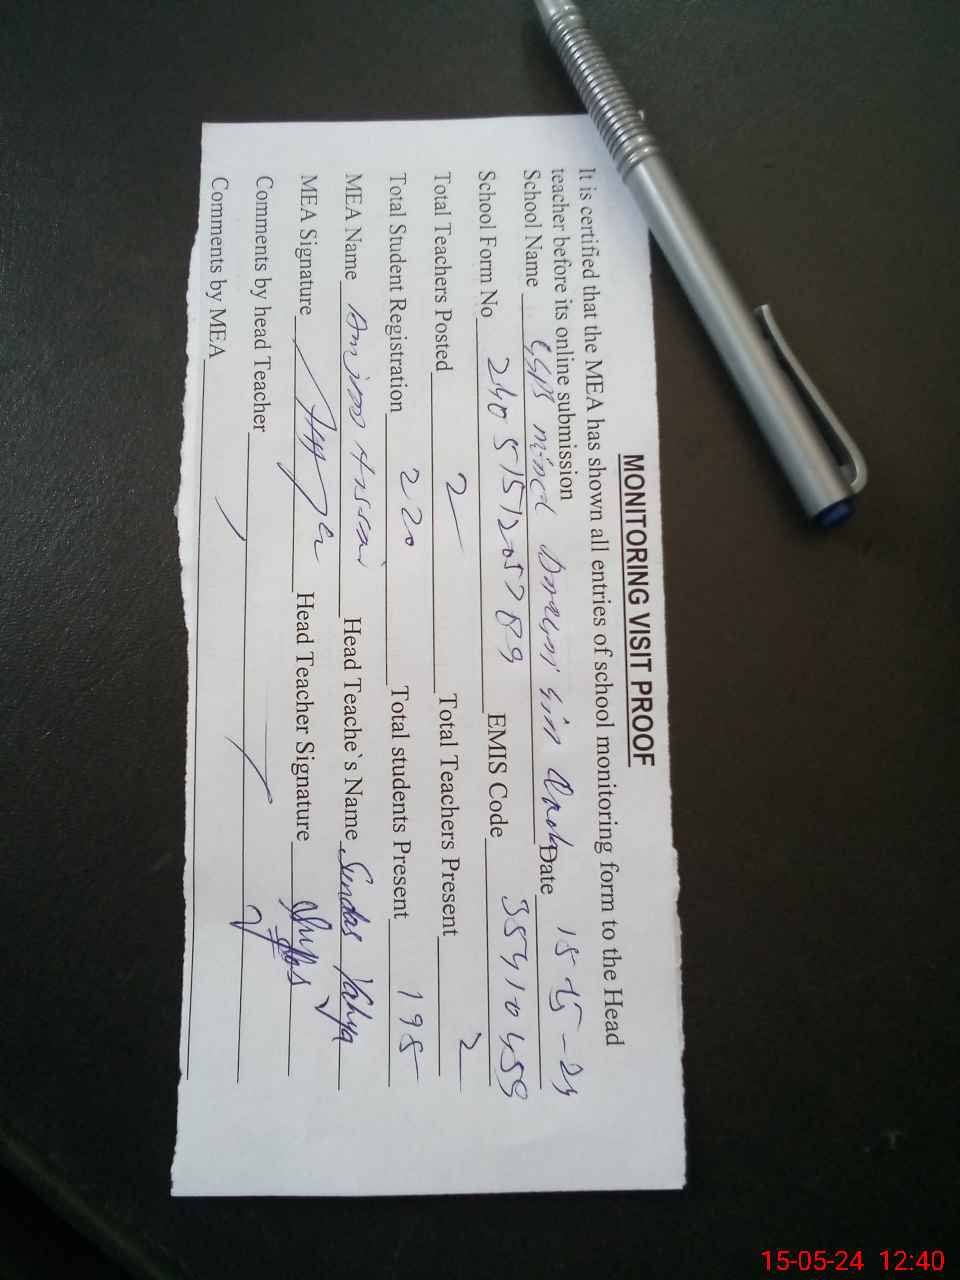 MONITORING VISIT PROOF
It is certified that the MEA has shown all entries of school monitoring form to the Head
teacher before its online submission
School Name Date 15-5-24
School Form No EMIS Code 35410459
Total Teachers Posted 2 Total Teachers Present 2
Total Student Registration 220 Total students Present 195
MEA Name Head Teache`s Name Sundas Yahya
MEA Signature Head Teacher Signature
Comments by head Teacher
Comments by MEA
15-05-24 12:40